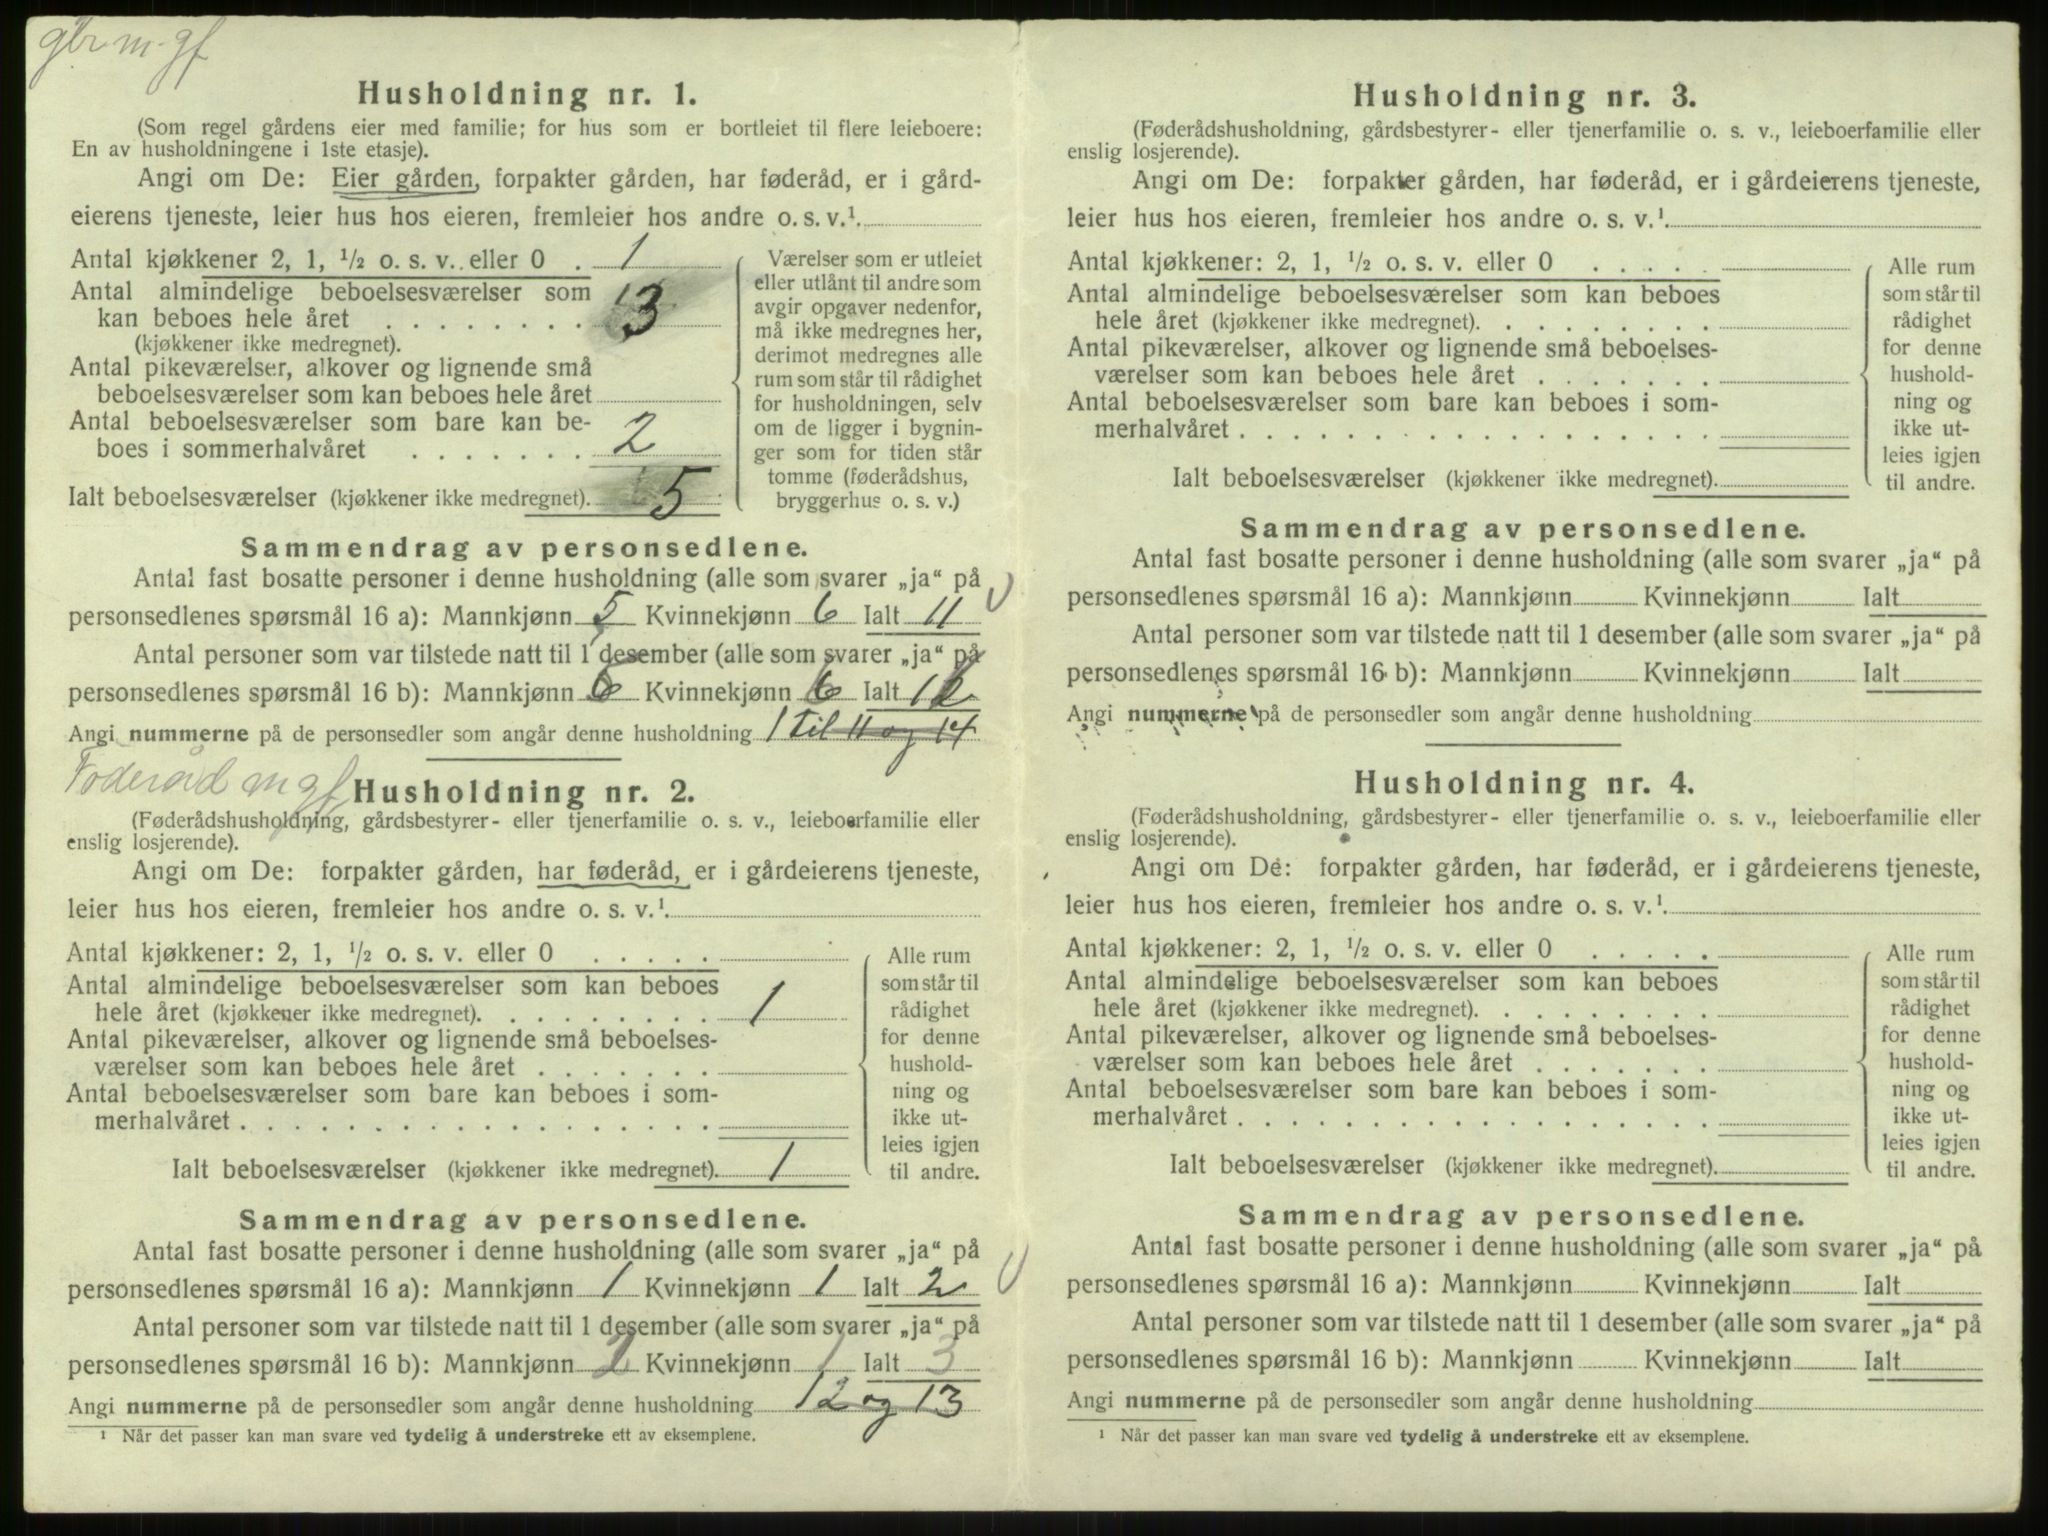 gbr m. gf
Husholdning nr. 1.
(Som regel gårdens eier med familie; for hus som er bortleiet til flere leieboere:
En av husholdningene i 1ste etasje).
Angi om De: Eier gården, forpakter gården, har føderåd, er i gård-
eierens tjeneste, leier hus hos eieren, fremleier hos andre o. s. v.¹.
Antal kjøkkener 2, 1, ½ o. s. v. eller 0 . 1
Antal almindelige beboelsesværelser som
kan beboes hele året . . . . . . . . 3
(kjøkkener ikke medregnet).
Antal pikeværelser, alkover og lignende små
beboelsesværelser som kan beboes hele året
Antal beboelsesværelser som bare kan be-
boes i sommerhalvåret . . . . . . . 2
Ialt beboelsesværelser (kjøkkener ikke medregnet). 5
Værelser som er utleiet
eller utlånt til andre som
avgir opgaver nedenfor,
må ikke medregnes her,
derimot medregnes alle
rum som står til rådighet
for husholdningen, selv
om de ligger i bygnin-
ger som for tiden står
tomme (føderådshus,
bryggerhus o. s. v.)
Sammendrag av personsedlene.
Antal fast bosatte personer i denne husholdning (alle som svarer „ja“ på
personsedlenes spørsmål 16 a): Mannkjønn 5 Kvinnekjønn 6 Ialt 11
Antal personer som var tilstede natt til 1 desember (alle som svarer „ja“ på
personsedlenes spørsmål 16 b): Mannkjønn Kvinnekjønn 6 Ialt
Angi nummerne på de personsedler som angår denne husholdning 1 til 11 og 14
Føderåd m gf
Husholdning nr. 2.
(Føderådshusholdning, gårdsbestyrer- eller tjenerfamilie o. s. v., leieboerfamilie eller
enslig losjerende).
Angi om De: forpakter gården, har føderåd, er i gårdeierens tjeneste,
leier hus hos eieren, fremleier hos andre o. s. v.¹.
Antal kjøkkener: 2, 1, ½ o. s. v. eller 0 . . . . .
Antal almindelige beboelsesværelser som kan beboes
hele året (kjøkkener ikke medregnet). . . . . . . . . 1
Antal pikeværelser, alkover og lignende små beboelses-
værelser som kan beboes hele året . . . . . . .
Antal beboelsesværelser som bare kan beboes i som-
merhalvåret . . . . . . . . . . . . . . . . . .
Ialt beboelsesværelser (kjøkkener ikke medregnet). 1
Alle rum
som står til
rådighet
for denne
hushold-
ning og
ikke ut-
leies igjen
til andre.
Sammendrag av personsedlene.
Antal fast bosatte personer i denne husholdning (alle som svarer „ja“ på
personsedlenes spørsmål 16 a): Mannkjønn 1 Kvinnekjønn 1 Ialt 2
Antal personer som var tilstede natt til 1 desember (alle som svarer „ja“ på
personsedlenes spørsmål 16 b): Mannkjønn 2 Kvinnekjønn 1 Ialt 3
Angi nummerne på de personsedler som angår denne husholdning 12 og 13
¹ Når det passer kan man svare ved tydelig å understreke ett av eksemplene.
Husholdning nr. 3.
(Føderådshusholdning, gårdsbestyrer- eller tjenerfamilie o. s. v., leieboerfamilie eller
enslig losjerende).
Angi om De: forpakter gården, har føderåd, er i gårdeierens tjeneste,
leier hus hos eieren, fremleier hos andre o. s. v.¹.
Antal kjøkkener: 2, 1, ½ o. s. v. eller 0 . . . . .
Antal almindelige beboelsesværelser som kan beboes
hele året (kjøkkener ikke medregnet). . . . . . . . .
Antal pikeværelser, alkover og lignende små beboelses-
værelser som kan beboes hele året . . . . . . .
Antal beboelsesværelser som bare kan beboes i som-
merhalvåret . . . . . . . . . . . . . . . . . .
Ialt beboelsesværelser (kjøkkener ikke medregnet).
Alle rum
som står til
rådighet
for denne
hushold-
ning og
ikke ut-
leies igjen
til andre.
Sammendrag av personsedlene.
Antal fast bosatte personer i denne husholdning (alle som svarer „ja“ på
personsedlenes spørsmål 16 a): Mannkjønn Kvinnekjønn Ialt
Antal personer som var tilstede natt til 1 desember (alle som svarer „ja“ på
personsedlenes spørsmål 16 b): Mannkjønn Kvinnekjønn Ialt
Angi nummerne på de personsedler som angår denne husholdning
Husholdning nr. 4.
(Føderådshusholdning, gårdsbestyrer- eller tjenerfamilie o. s. v., leieboerfamilie eller
enslig losjerende).
Angi om De: forpakter gården, har føderåd, er i gårdeierens tjeneste,
leier hus hos eieren, fremleier hos andre o. s. v.¹.
Antal kjøkkener: 2, 1, ½ o. s. v. eller 0 . . . . .
Antal almindelige beboelsesværelser som kan beboes
hele året (kjøkkener ikke medregnet). . . . . . . . .
Antal pikeværelser, alkover og lignende små beboelses-
værelser som kan beboes hele året . . . . . . .
Antal beboelsesværelser som bare kan beboes i som-
merhalvåret . . . . . . . . . . . . . . . . . .
Ialt beboelsesværelser (kjøkkener ikke medregnet).
Alle rum
som står til
rådighet
for denne
hushold-
ning og
ikke ut-
leies igjen
til andre.
Sammendrag av personsedlene.
Antal fast bosatte personer i denne husholdning (alle som svarer „ja“ på
personsedlenes spørsmål 16 a): Mannkjønn Kvinnekjønn Ialt
Antal personer som var tilstede natt til 1 desember (alle som svarer „ja“ på
personsedlenes spørsmål 16 b): Mannkjønn Kvinnekjønn Ialt
Angi nummerne på de personsedler som angår denne husholdning
¹ Når det passer kan man svare ved tydelig å understreke ett av eksemplene.